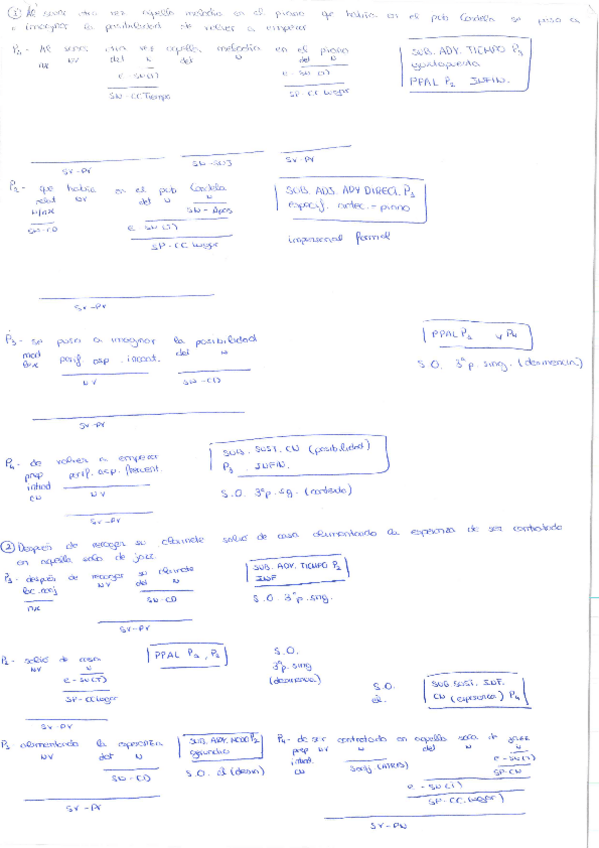 ① Al sonar otra vez aquella melodía en el piano que había en el pub Candela se puso a
imaginar la posibilidad de volver a empezar
P1- Al sonar otra vez aquella melodía en el piano
nx NV det N det N det N
e - SN(T) e - SN(T)
SN-CC Tiempo SP-CC Lugar
SUB. ADV. TIEMPO P3
yuxtapuesta
PPAL P2 INFIN.
SV-PV SN-SUJ SV-PV
P2- que había en el pub Candela
relat NV det N N
N/nx SN-Apos
SN-CD e SN(T)
SP-CC Lugar
SUB. ADJ. ADV DIRECT. P1
especif. antec.-piano
impersonal formal
SV-PV
P3- se puso a imaginar la posibilidad
perif. asp. incoat. det N
NV SN-CD
PPAL P1 y P4
S.O. 3ªp. sing. (desinencia)
SV-PV
P4- de volver a empezar
prep perif. asp. frecuent.
CN NV
SUB. SUST. CN (posibilidad)
P3 INFIN.
S.O. 3ªp. sg. (contexto)
SV-PV
② Después de recoger su clarinete salió de casa alimentando la esperanza de ser contratado
en aquella sala de jazz.
P1- después de recoger su clarinete
loc. conj NV det N
nx SN-CD
SUB. ADV. TIEMPO P2
INF
S.O. 3ªp. sing.
SV-PV
P2- salió de casa
NV N
e - SN(T)
SP-CC Lugar
PPAL P1, P3
S.O.
3ªp. sing
(desinencia)
S.O.
él.
SUB SUST. INF.
CN (esperanza) P4
SV-PV
P3 alimentando la esperanza
NV det N
SN-CD
SUB. ADV. MODO P2
gerundio
S.O. él (desin)
SV-PV
P4- de ser contratado en aquella sala de jazz
prep NV det N N
CN e - SN(T)
SP-CN
e - SN(T)
SP-CC. Lugar
SV-PN